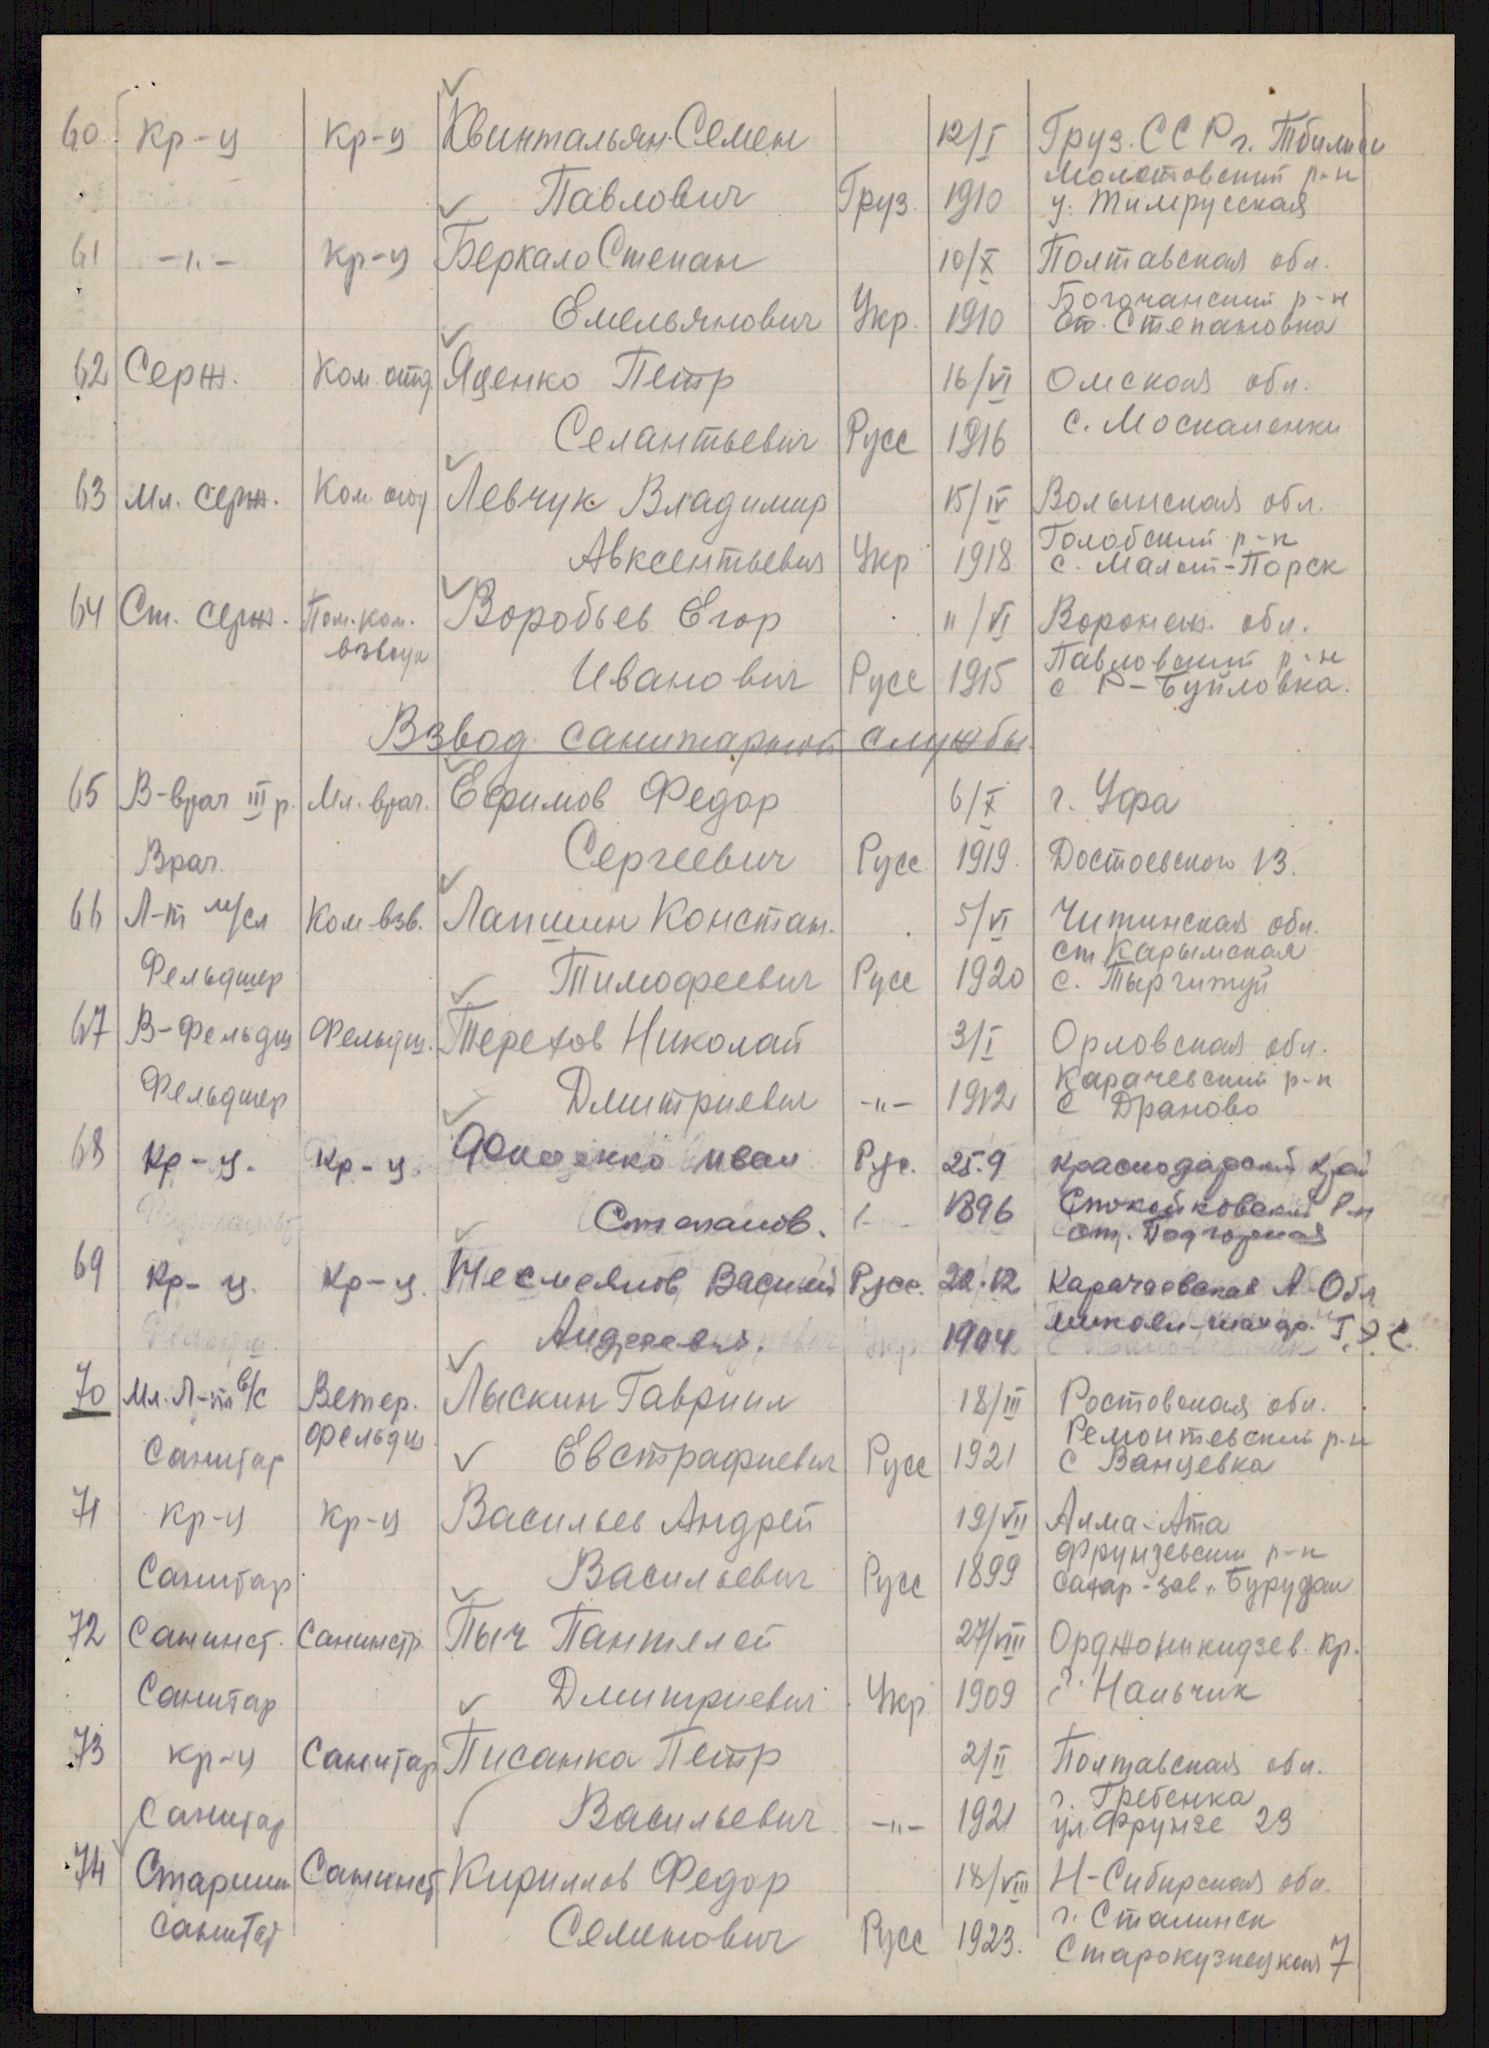 60 Кр-ц Кр-ц Квинтальян Семен 12/I Груз. ССР г. Тбилиси
Молотовский р-н
Павлович Груз. 1910 у. Тимрусская
61 -"- Кр-ц Беркало Степан 10/X Полтавская обл.
Богочанский р-н
Емельянович Укр. 1910 ст. Степановка
62 Серж. Ком. отд. Яценко Петр 16/VI Омская обл.
Селантьевич Русс 1916 с. Москаленки
63 Мл. серж. Ком. отд Левчук Владимир 15/IV Волынская обл.
Голобский р-н
Авксентьевич Укр 1918 с. Малый-Порск
64 Ст. серж. Пом. ком. Воробьев Егор 11/VI Воронеж. обл.
взвода Павловский р-н
Иванович Русс 1915 с Р-Буйловка.
Взвод санитарной службы
65 В-врач III р. Мл. врач. Ефимов Федор 6/X г. Уфа
Врач. Сергеевич Русс 1919. Достоевского 13.
66 Л-т м/сл Ком. взв. Лапшин Констан. 5/VI Читинская обл.
ст Карымская
Фельдшер Тимофеевич Русс 1920 с.
67 В-Фельдш Фельдш. Терехов Николай 3/I Орловская обл.
Карачевский р-н
Фельдшер Дмитриевич -"- 1912 с Драново
68 Кр-ц. Кр-ц Иван Рус. 25.9 Краснодарский край
Степанов. 1896 Спокойновский р-н
ст. Подгорная
69 Кр-ц. Кр-ц. Василий Русс. 20.12 Карачаевская А. Обл
Андреевич. 1904 Г.Э.С.
70 Мл. Л-т в/с Ветер. Лыскин Гавриил 18/III Ростовская обл.
фельдш. Ремонтевский р-н
Санитар Евстрафиевич Русс 1921 с Ванцевка
71 Кр-ц Кр-ц Васильев Андрей 19/VII Алма-Ата
Фрунзевский р-н
Санитар Васильевич Русс 1899 сахар-зав.
72 Санинст. Санинстр. Пыч Пантелей 27/VIII Орджоникидзев. кр.
Санитар Дмитриевич Укр 1909 г. Нальчик
73 Кр-ц Санитар Писанка Петр 2/II Полтавская обл.
г. Гребенка
Санитар Васильевич -"- 1921 ул Фрунзе 23
74 Старшин Санинст Кириллов Федор 18/VIII Н-Сибирская обл.
г. Сталинск
Санитар Семенович Русс 1923. Старокузнецкая 7